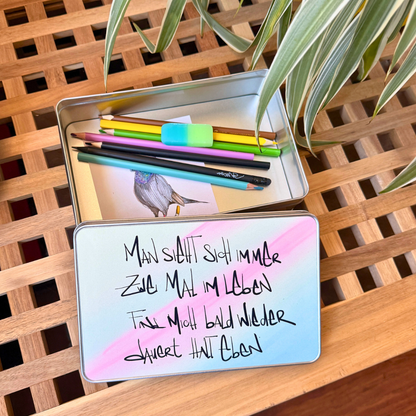 Man sieht sich immer
Zwei Mal im Leben
Find Mich bald wieder
dauert halt eben